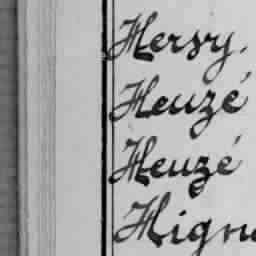 Hervy.
Heuzé
Heuzé
Hign